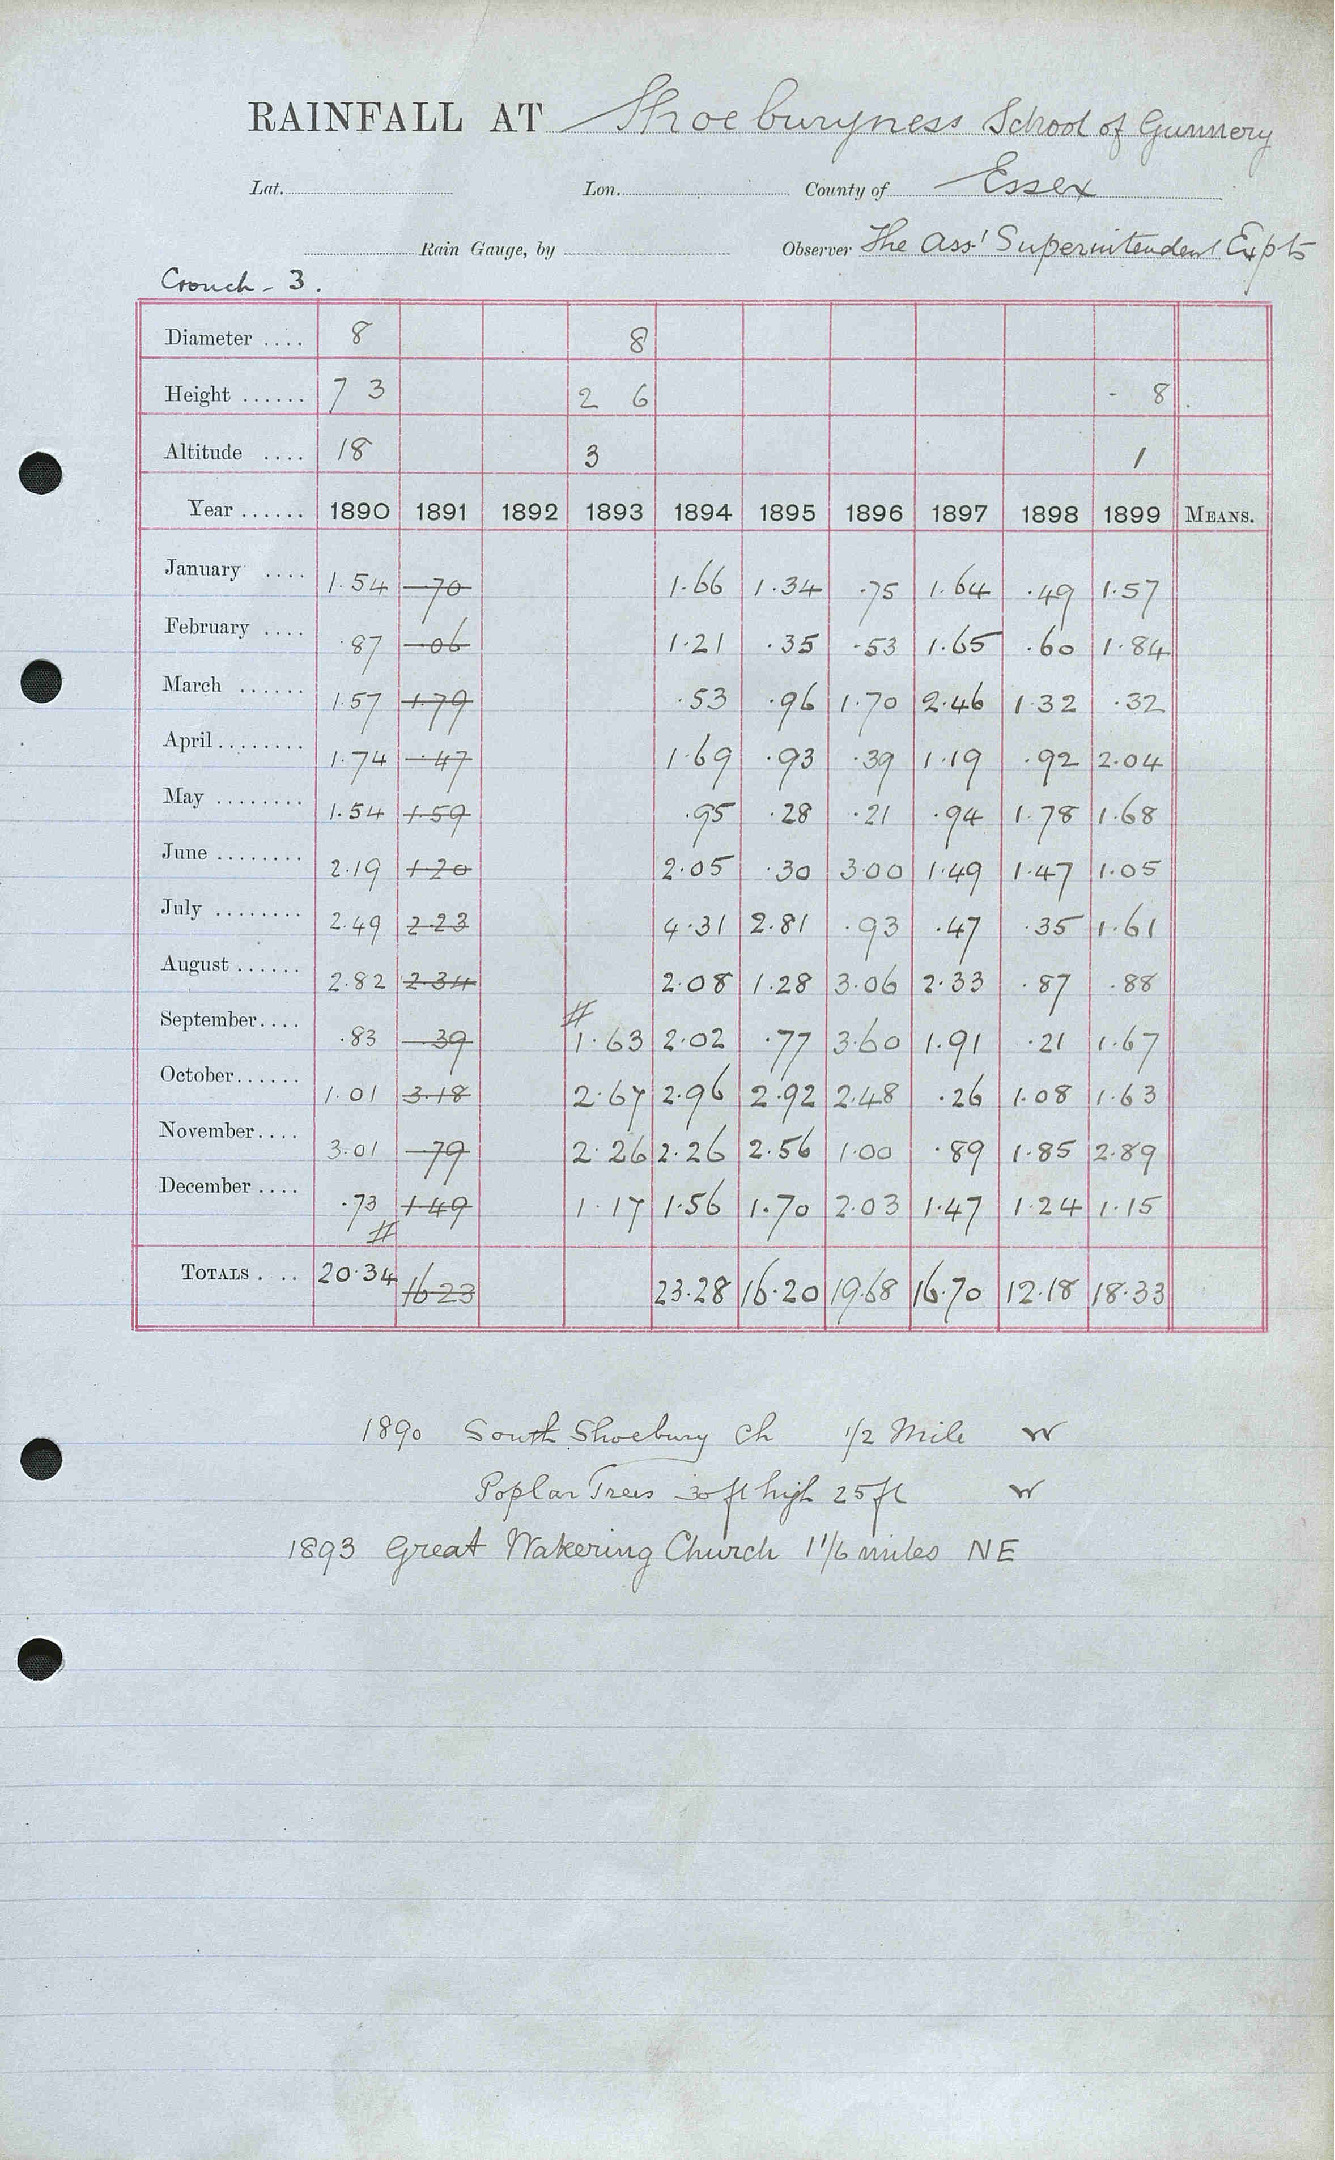 RAINFALL AT Shoeburyness School of Gunnery
Lat. Lon. County of Essex
Rain Gauge, by Observer The Asst Superintendent Expts
Crouch - 3.
Diameter .... 8 8
Height ...... 7 3 2 6 - 8
Altitude .... 18 3 1
Year ...... 1890 1891 1892 1893 1894 1895 1896 1897 1898 1899 MEANS.
January .... 1.54 .70 1.66 1.34 .75 1.64 .49 1.57
February .... .87 .06 1.21 .35 .53 1.65 .60 1.84
March ...... 1.57 1.79 .53 .96 1.70 2.46 1.32 .32
April ........ 1.74 .47 1.69 .93 .39 1.19 .92 2.04
May ........ 1.54 1.59 .95 .28 .21 .94 1.78 1.68
June ........ 2.19 1.20 2.05 .30 3.00 1.49 1.47 1.05
July ........ 2.49 2.23 4.31 2.81 .93 .47 .35 1.61
August ...... 2.82 2.34 2.08 1.28 3.06 2.33 .87 .88
#
September .... .83 .39 1.63 2.02 .77 3.60 1.91 .21 1.67
October ...... 1.01 3.18 2.67 2.96 2.92 2.48 .26 1.08 1.63
November .... 3.01 .79 2.26 2.26 2.56 1.00 .89 1.85 2.89
December .... .73 1.49 1.17 1.56 1.70 2.03 1.47 1.24 1.15
#
TOTALS .... 20.34 16.23 23.28 16.20 19.68 16.70 12.18 18.33
1890 South Shoebury Ch 1/2 Mile W
Poplar Trees 30 ft high 25 ft W
1893 Great Wakering Church 1 1/6 miles NE